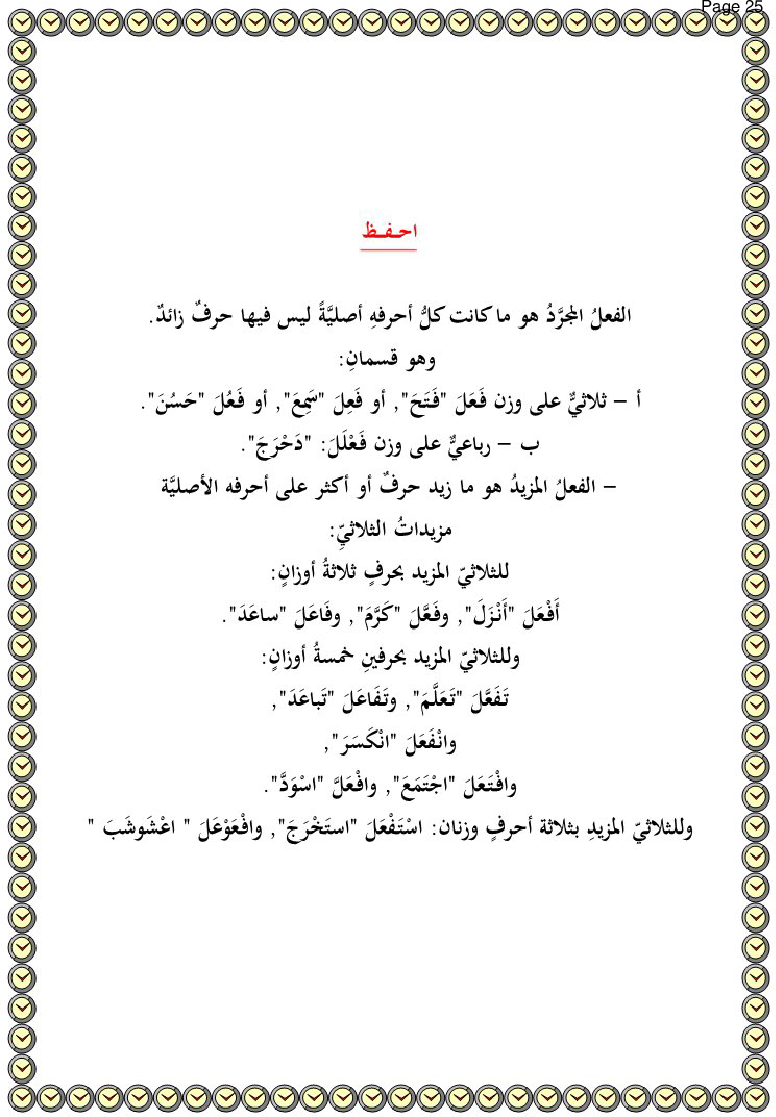 Page 25
احـفـظ
الفعلُ المجرَّدُ هو ما كانت كلُّ أحرفهِ أصليَّةً ليس فيها حرفٌ زائدٌ.
وهو قسمانِ:
أ – ثلاثيٌّ على وزن فَعَلَ "فَتَحَ", أو فَعِلَ "سَمِعَ", أو فَعُلَ "حَسُنَ".
ب – رباعيٌّ على وزن فَعْلَلَ: "دَحْرَجَ".
– الفعلُ المزيدُ هو ما زيد حرفٌ أو أكثر على أحرفه الأصليَّة
مزيداتُ الثلاثيِّ:
للثلاثيّ المزيد بحرفٍ ثلاثةُ أوزانٍ:
أَفْعَلَ "أَنْزَلَ", وفَعَّلَ "كَرَّمَ", وفَاعَلَ "ساعَدَ".
وللثلاثيّ المزيد بحرفينِ خمسةُ أوزانٍ:
تَفَعَّلَ "تَعَلَّمَ", وتَفَاعَلَ "تَباعَدَ",
وانْفَعَلَ "انْكَسَرَ",
وافْتَعَلَ "اجْتَمَعَ", وافْعَلَّ "اسْوَدَّ".
وللثلاثيّ المزيدِ بثلاثة أحرفٍ وزنان: اسْتَفْعَلَ "استَخْرَجَ", وافْعَوْعَلَ " اعْشَوشَبَ "